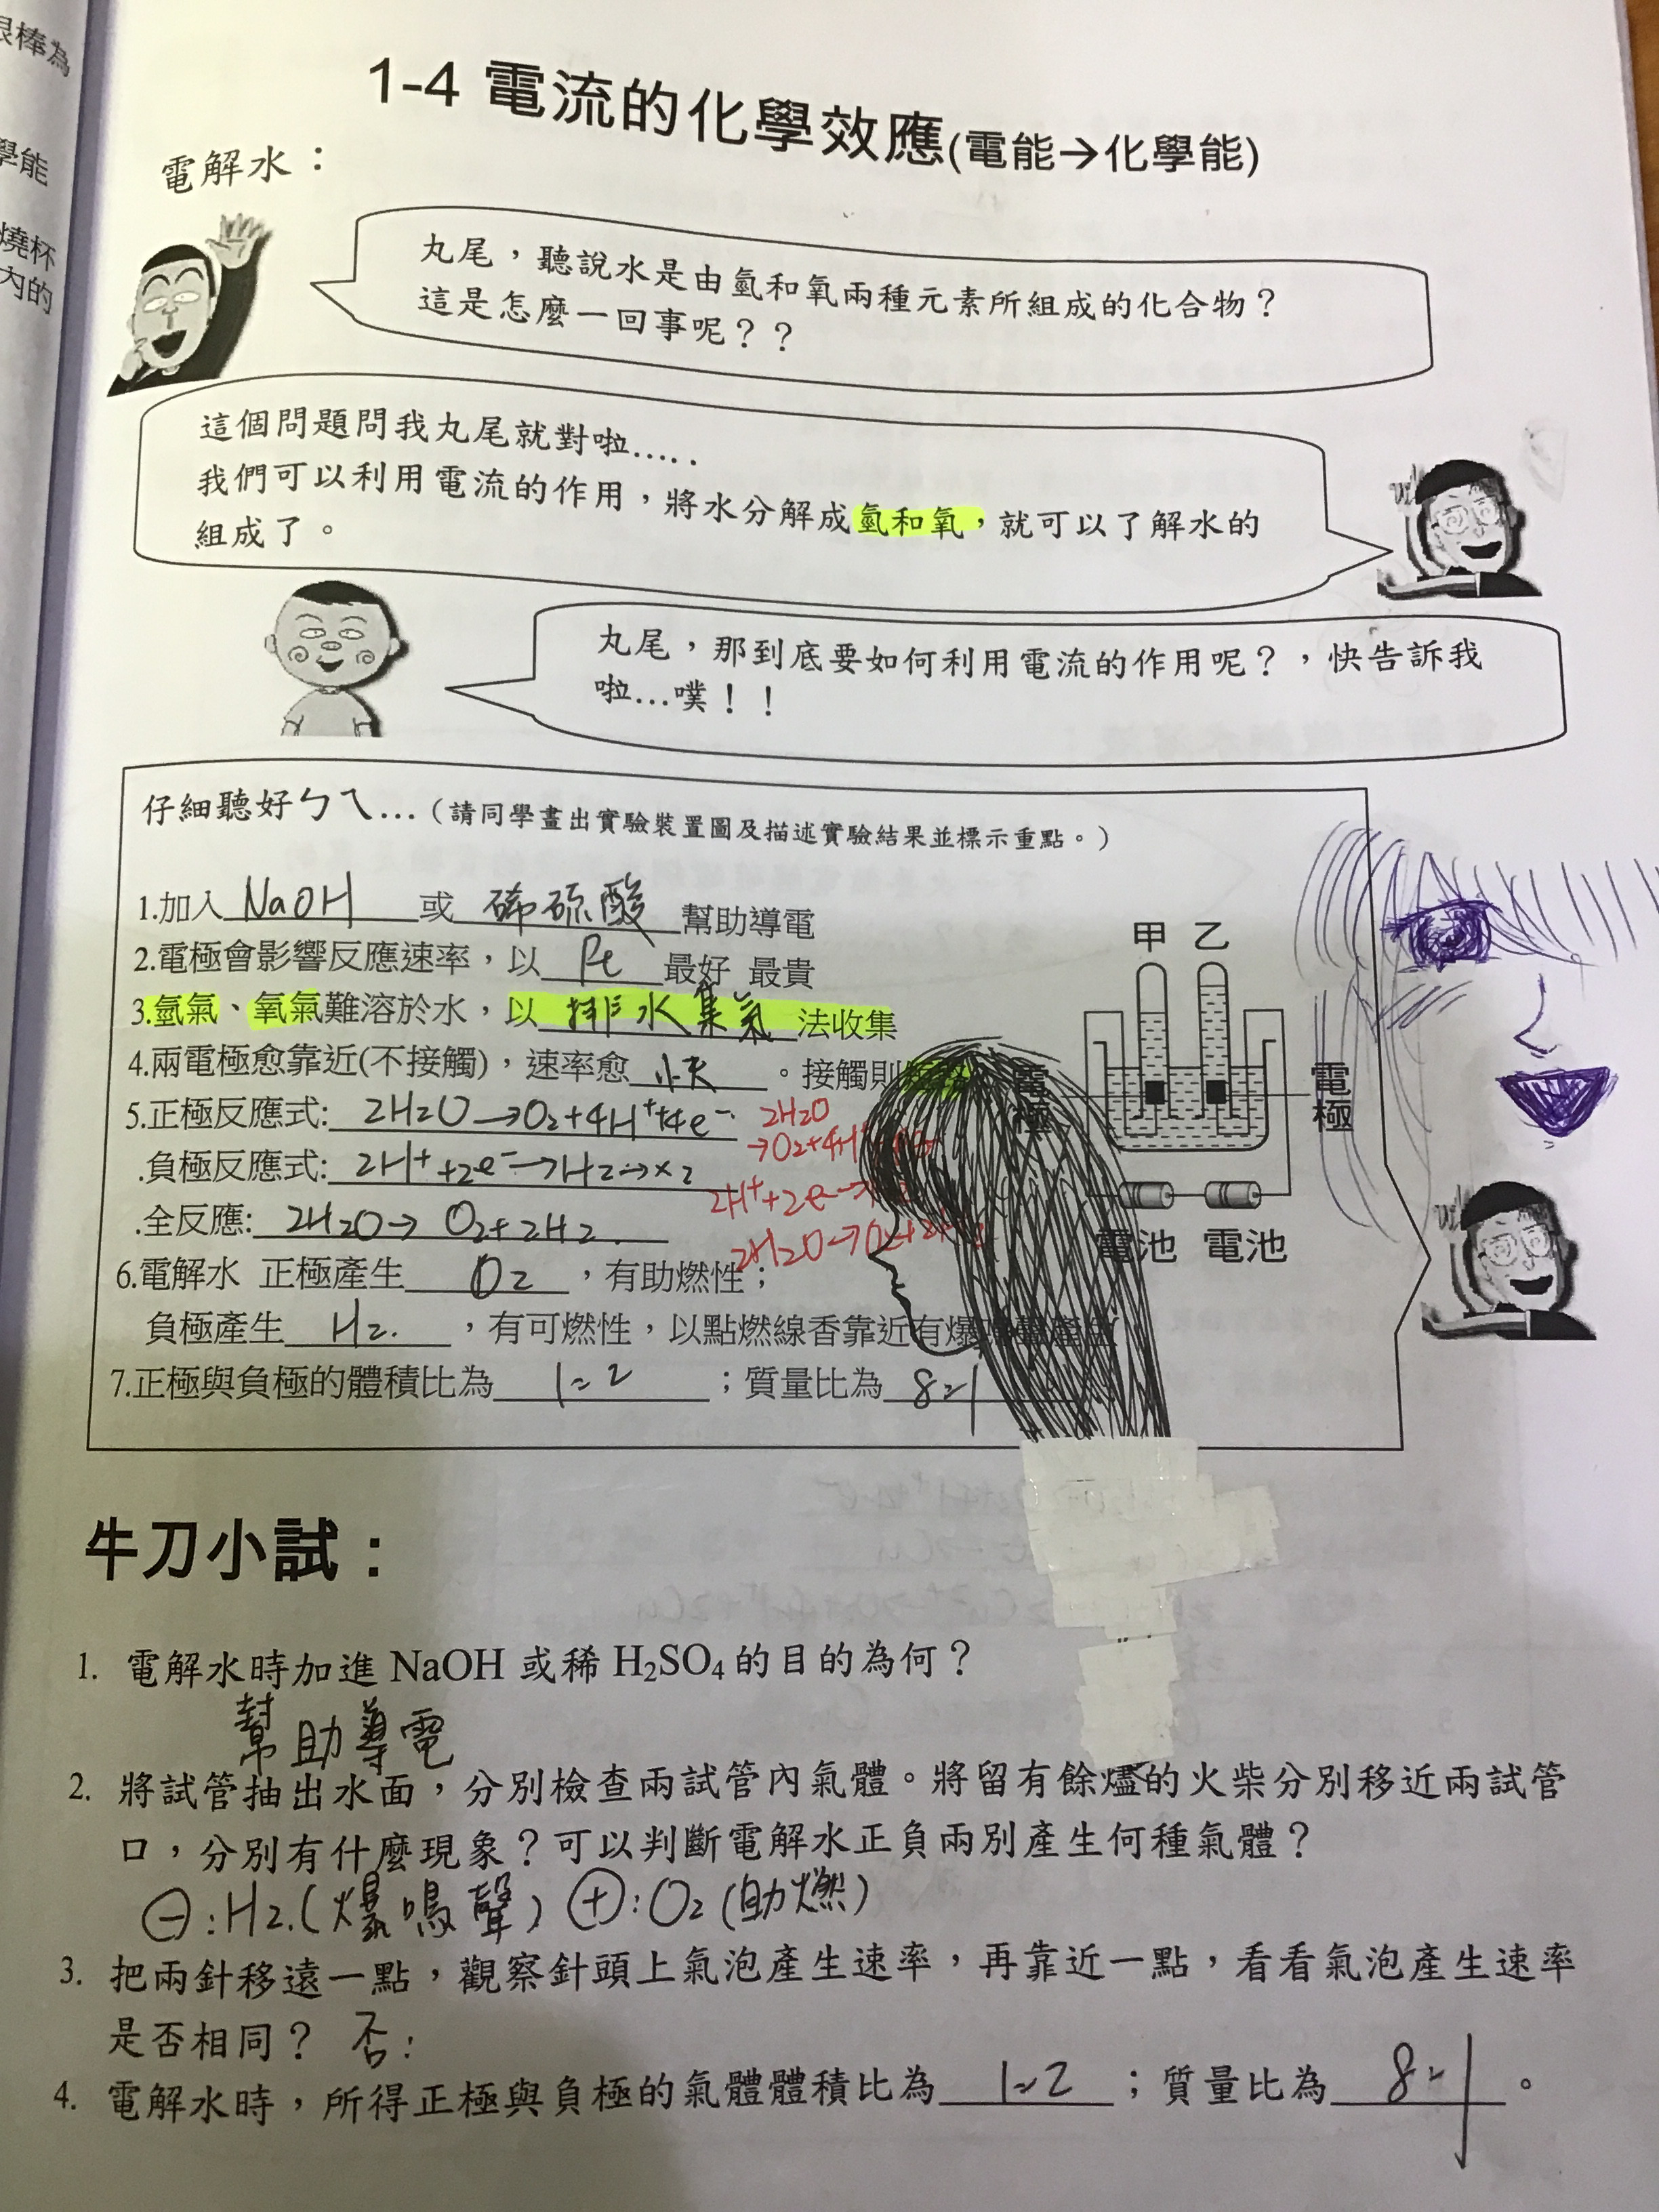 根棒為
學能
燒杯
內的
1-4 電流的化學效應(電能→化學能)
電解水：
丸尾，聽說水是由氫和氧兩種元素所組成的化合物？
這是怎麼一回事呢？？
這個問題問我丸尾就對啦.....
我們可以利用電流的作用，將水分解成氫和氧，就可以了解水的
組成了。
丸尾，那到底要如何利用電流的作用呢？，快告訴我
啦...噗！！
仔細聽好ㄅㄟ...(請同學畫出實驗裝置圖及描述實驗結果並標示重點。)
1.加入 NaOH 或 硫酸 幫助導電
2.電極會影響反應速率，以 最好 最貴
3.氫氣、氧氣難溶於水，以 排水集氣 法收集
4.兩電極愈靠近(不接觸)，速率愈 快 。接觸則
5.正極反應式: 2H2O→O2+4H⁺+4e⁻
2H2O
→O2+4H⁺
.負極反應式: 2H⁺+2e⁻→H2→×2
2H⁺+2e⁻→
.全反應: 2H2O→O2+2H2.
2H2O→O2+2H2
6.電解水 正極產生 O2 ，有助燃性；
負極產生 H2. ，有可燃性，以點燃線香靠近有爆鳴聲產生
7.正極與負極的體積比為 1:2 ；質量比為 8:1
甲 乙
電極
電極
電池 電池
牛刀小試：
1. 電解水時加進 NaOH 或稀 H₂SO₄ 的目的為何？
幫助導電
2. 將試管抽出水面，分別檢查兩試管內氣體。將留有餘燼的火柴分別移近兩試管
口，分別有什麼現象？可以判斷電解水正負兩別產生何種氣體？
⊖:H2.(爆鳴聲) ⊕:O2(助燃)
3. 把兩針移遠一點，觀察針頭上氣泡產生速率，再靠近一點，看看氣泡產生速率
是否相同？ 否:
4. 電解水時，所得正極與負極的氣體體積比為 1:2 ；質量比為 8:1 。